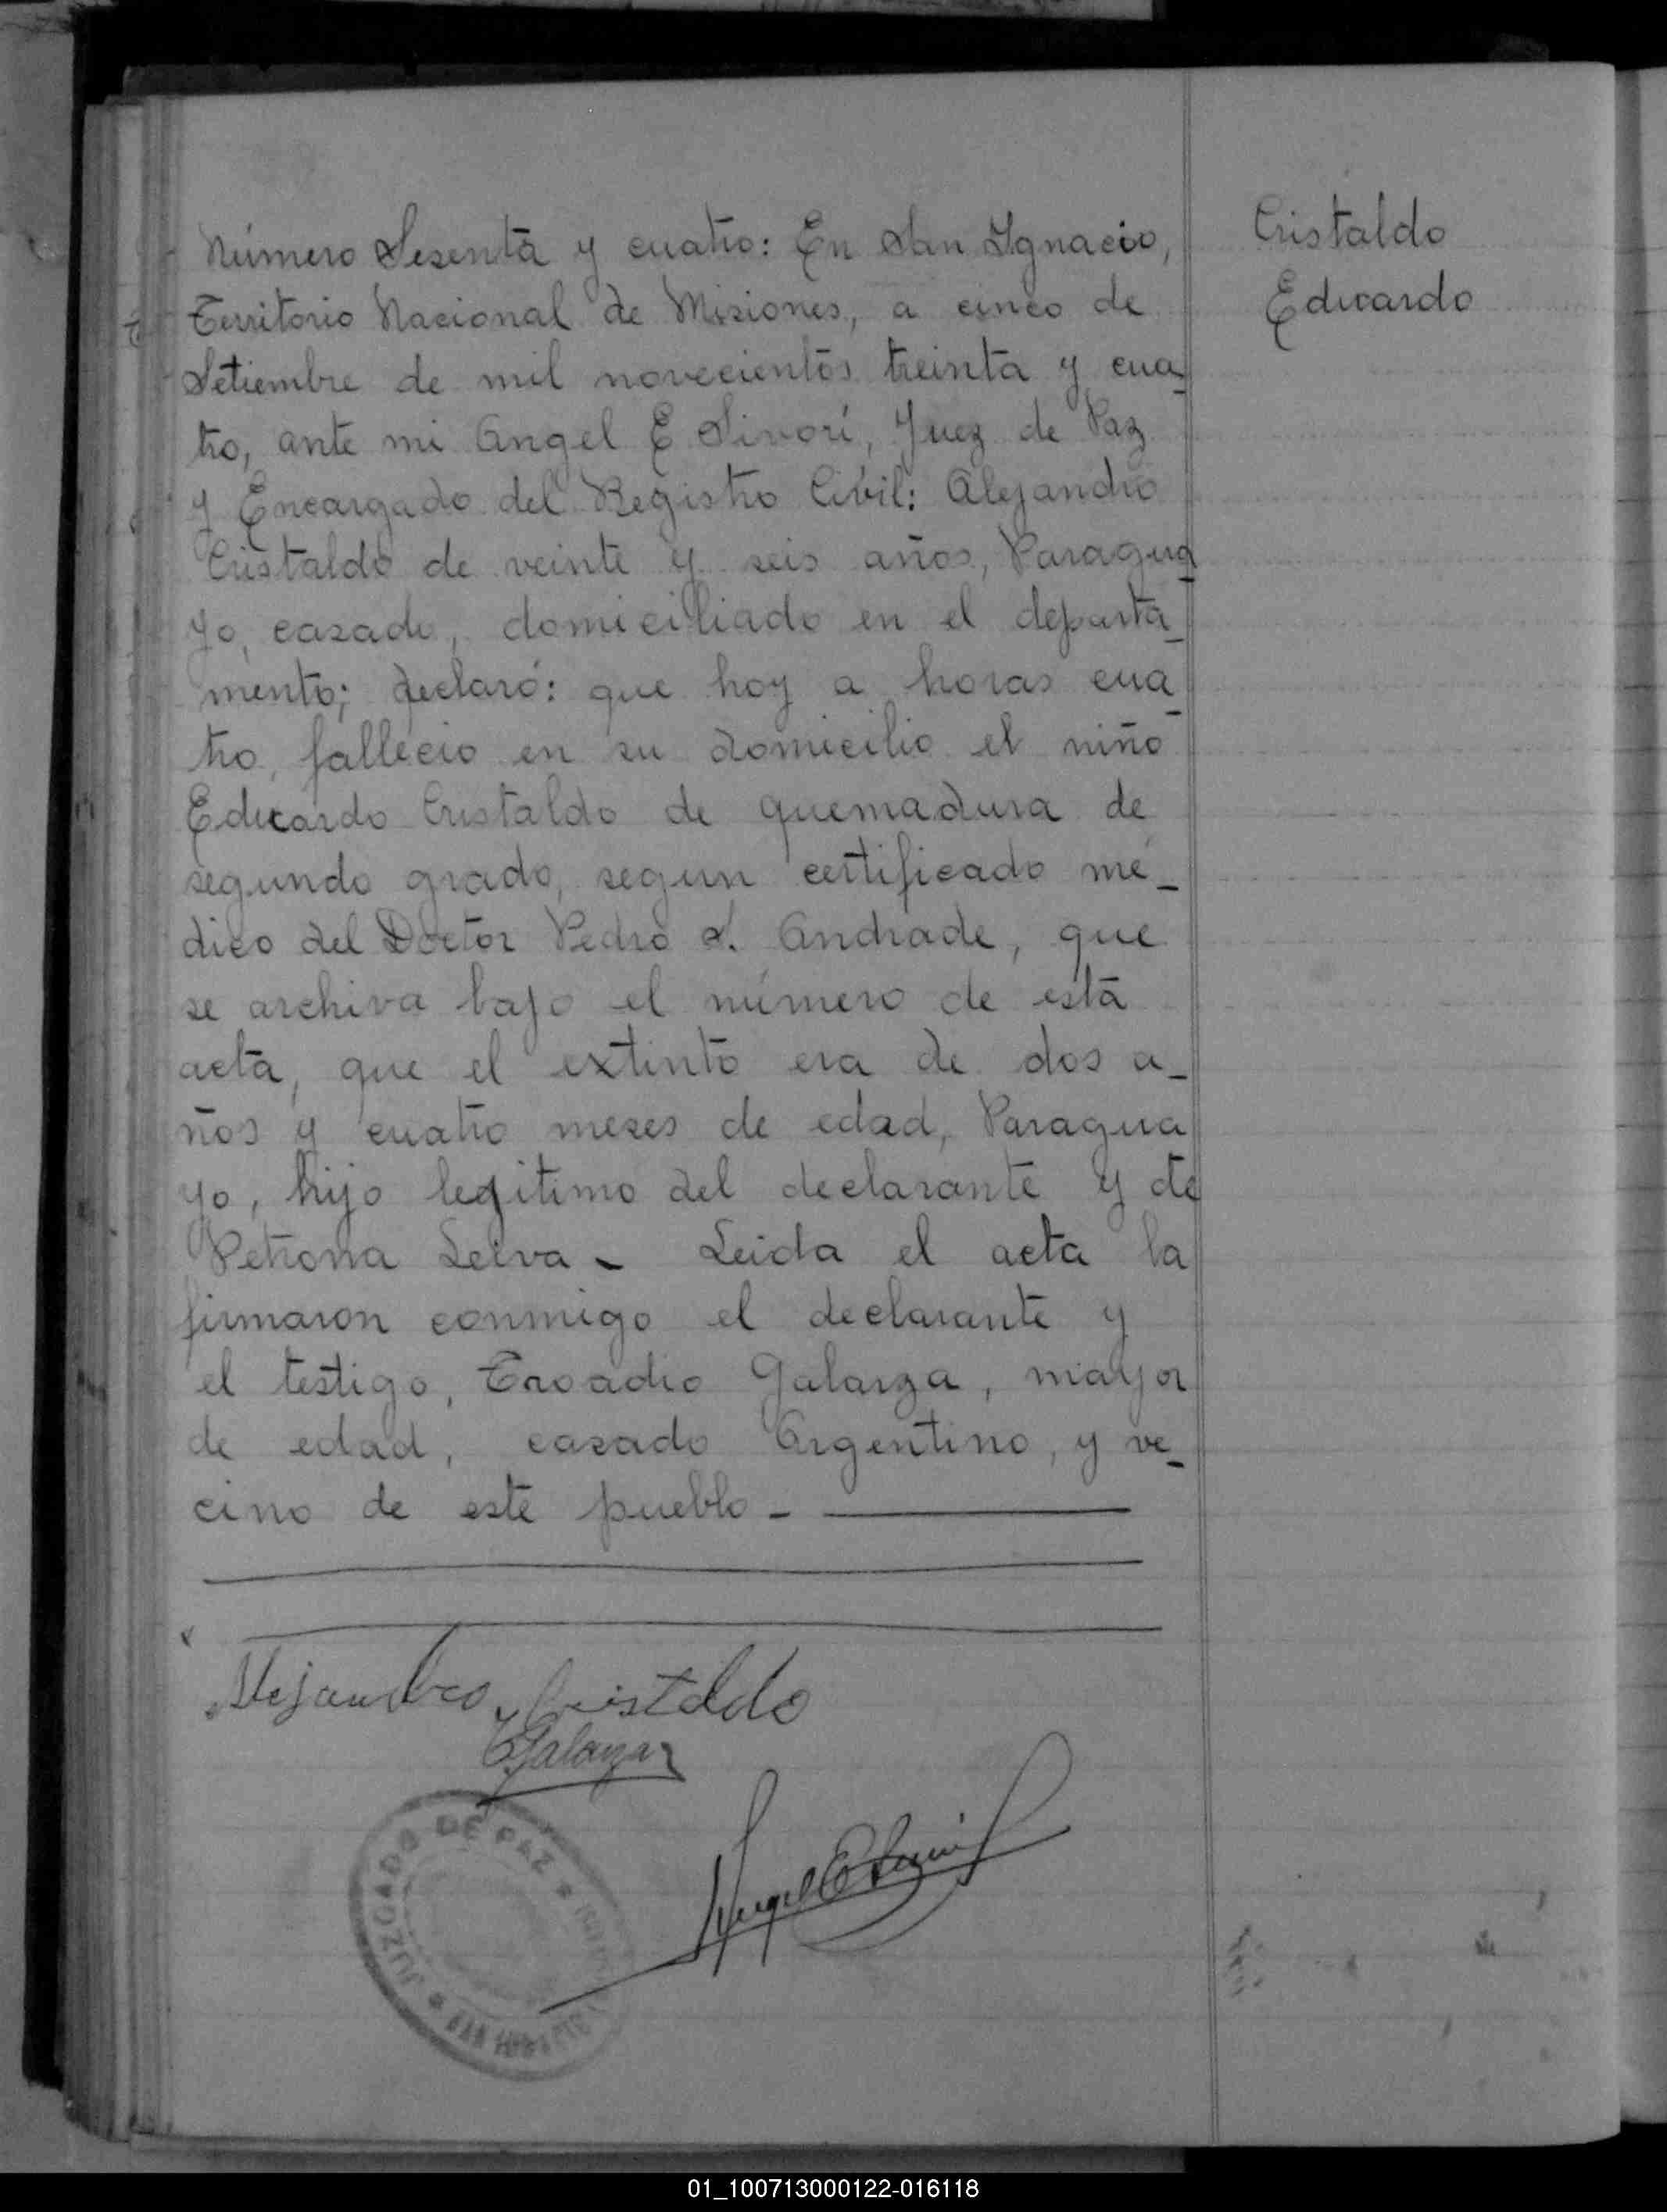 Número Sesenta y cuatro: En San Ignacio,
Territorio Nacional de Misiones, a cinco de
Setiembre de mil novecientos treinta y cua_
tro, ante mi Angel E Sivori, Juez de Paz
y Encargado del Registro Civil: Alejandro
Cristaldo de veinte y seis años, Paragua_
yo, casado, domiciliado en el departa_
mento; declaró: que hoy a horas cua_
tro, falleció en su domicilio el niño
Eduardo Cristaldo de quemadura de
segundo grado, segun certificado mé_
dico del Doctor Pedro S. Andrade, que
se archiva bajo el número de esta
acta, que el extinto era de dos a_
ños y cuatro meses de edad, Paragua
yo, hijo legitimo del declarante y de
Petrona Leiva - Leida el acta la
firmaron conmigo el declarante y
el testigo, Troadio Galarza, mayor
de edad, casado Argentino, y ve_
cino de este pueblo -
Cristaldo
Eduardo
Alejandro Cristaldo
TGalarza
Angel E Sivori
JUZGADO DE PAZ * * SAN IGNACIO
01_100713000122-016118